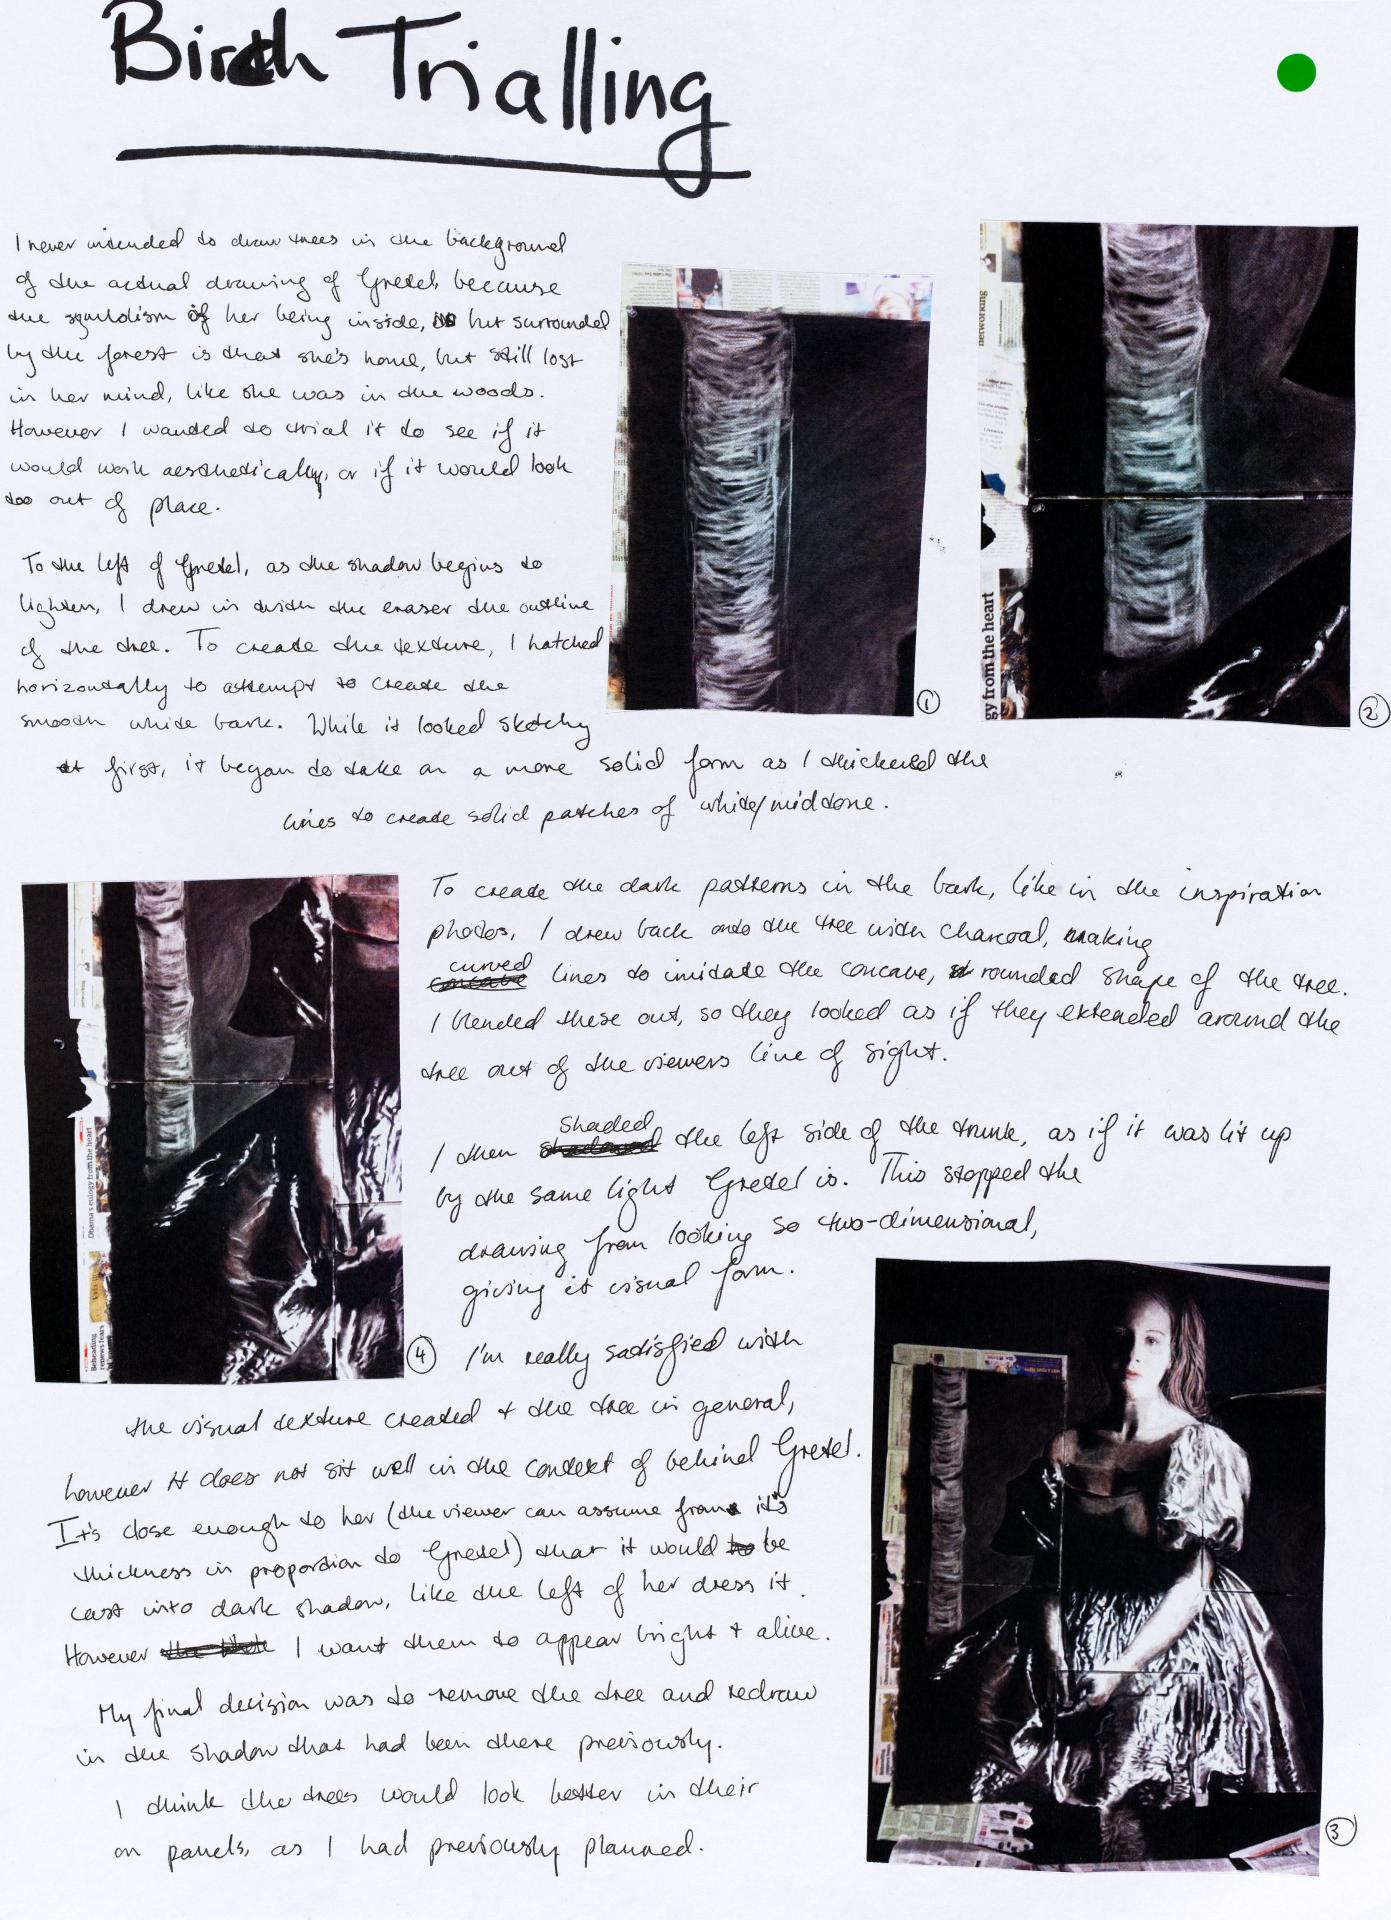 Birch Trialling
I never intended to draw trees in the background
of the actual drawing of Gretel, because
the symbolism of her being inside, but surrounded
by the forest is that she's home, but still lost
in her mind, like she was in the woods.
However I wanted to trial it to see if it
would work aesthetically, or if it would look
too out of place.
To the left of Gretel, as the shadow begins to
lighten, I drew in with the eraser the outline
of the tree. To create the texture, I hatched
horizontally to attempt to create the
smooth white bark. While it looked sketchy
at first, it began to take on a more solid form as I thickened the
lines to create solid patches of white/midtone.
1
networking
gy from the heart
2
To create the dark patterns in the bark, like in the inspiration
photos, I drew back onto the tree with charcoal, making
curved
concave lines to imitate the concave, rounded shape of the tree.
I blended these out, so they looked as if they extended around the
tree out of the viewers line of sight.
Shaded
I then shadowed the left side of the trunk, as if it was lit up
by the same light Gretel is. This stopped the
drawing from looking so two-dimensional,
giving it visual form.
Obama's eulogy from the heart
Beheading
renews fears
4
I'm really satisfied with
the visual texture created + the tree in general,
however it does not sit well in the context of behind Gretel.
It's close enough to her (the viewer can assume from it's
thickness in proportion to Gretel) that it would to be
cast into dark shadow, like the left of her dress it.
However I want them to appear bright + alive.
My final decision was to remove the tree and redraw
in the shadow that had been there previously.
I think the trees would look better in their
on panels, as I had previously planned.
3